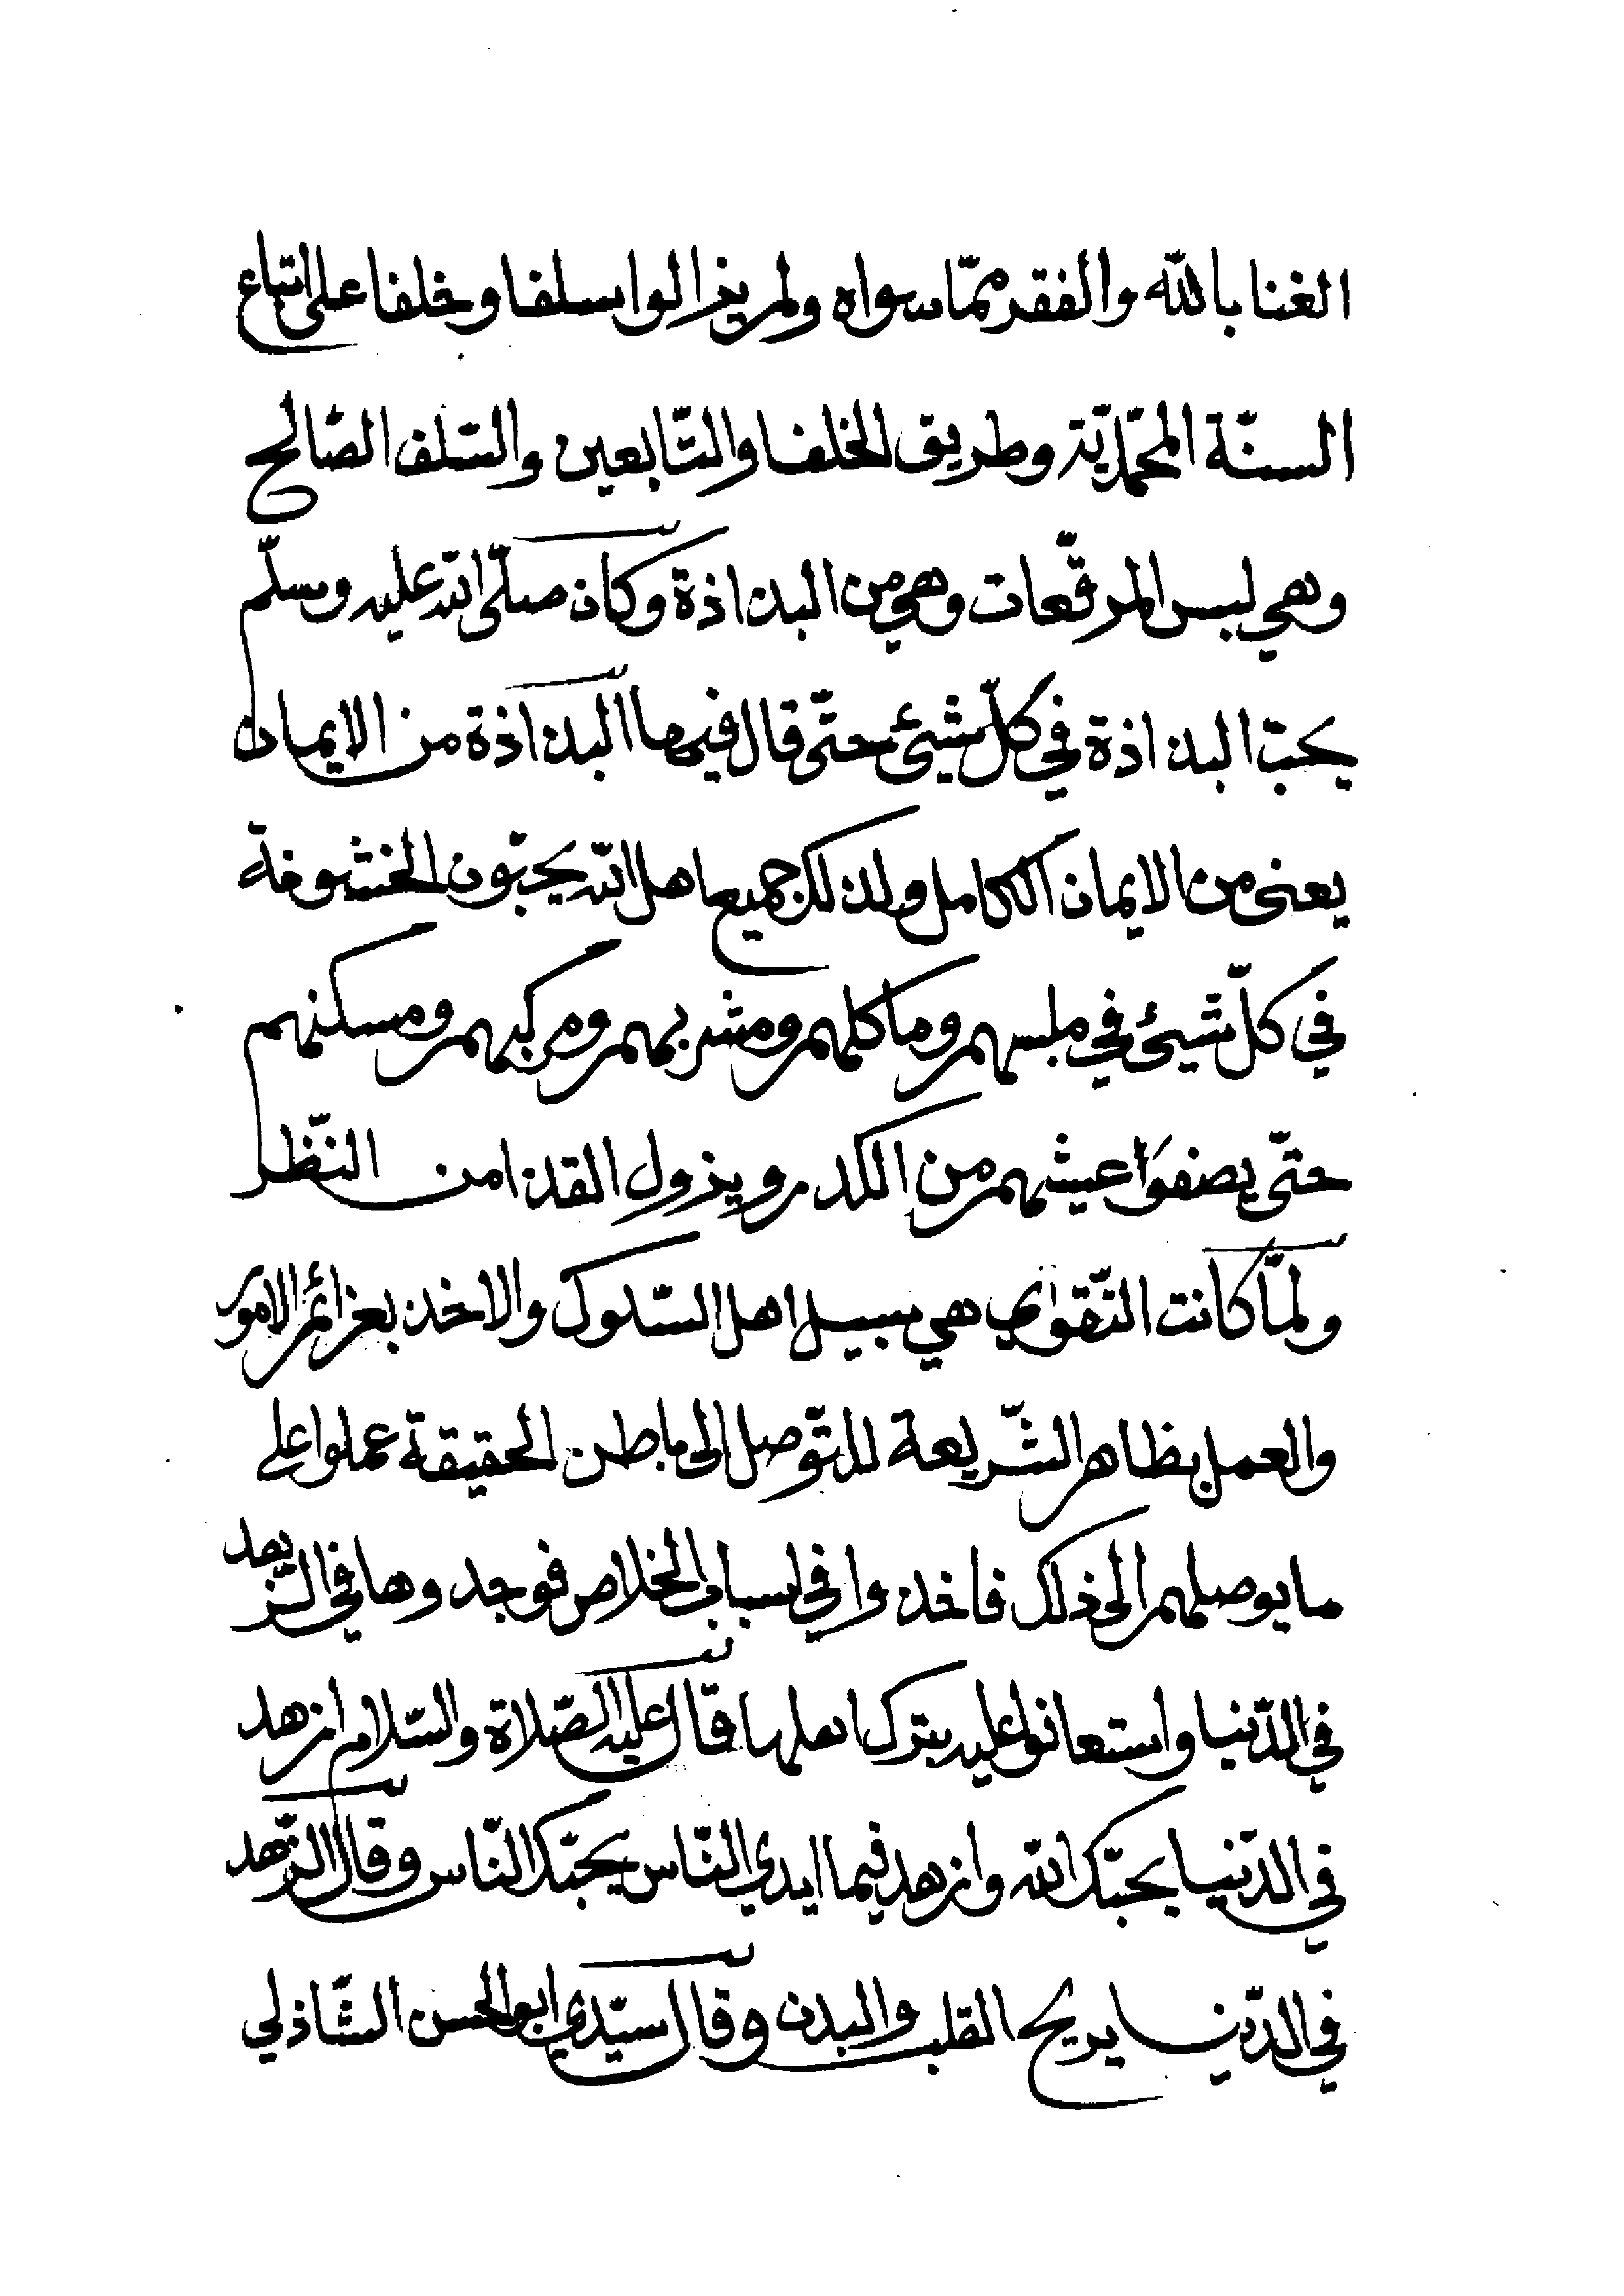 الغنا بالله والفقر ممّا سواه ولم يزالوا سلفا وخلفا على اتباع
السنّة المحمّديّة وطريق الخلفا والتّابعين والسّلف الصّالح
وهي لبس المرقّعات وهي من البذاذة وكان صلّى الله عليه وسلّم
يحبّ البذاذة في كلّ شيئ حتّى قال فيها البذاذة من الايمان
يعنى من الايمان الكامل ولذلك جميع اهل الله يحبّون الخشونة
في كلّ شيئ في ملبسهم وماكلهم ومشربهم ومركبهم ومسكنهم
حتّى يصفوَا عيشهم من الكدر ويزول القذا من النّظر
ولمّا كانت التّقواي هي سبيل اهل السّلوك والاخذ بعزائم الامور
والعمل بظاهر الشّريعة للتّوصل الى باطن الحقيقة عملوا على
ما يوصلهم الى ذلك فاخذوا في اسباب الخلاص فوجدوها في الزّهد
في الدّنيا واستعانوا عليه بترك اهلها قال عليه الصّلاة والسّلام ازهد
في الدّنيا يحبّك الله وازهد فيما ايدي النّاس يحبّك النّاس وقال الزّهد
في الدّنيا يريح القلب والبدن وقال سيّدي ابو الحسن الشّاذلي